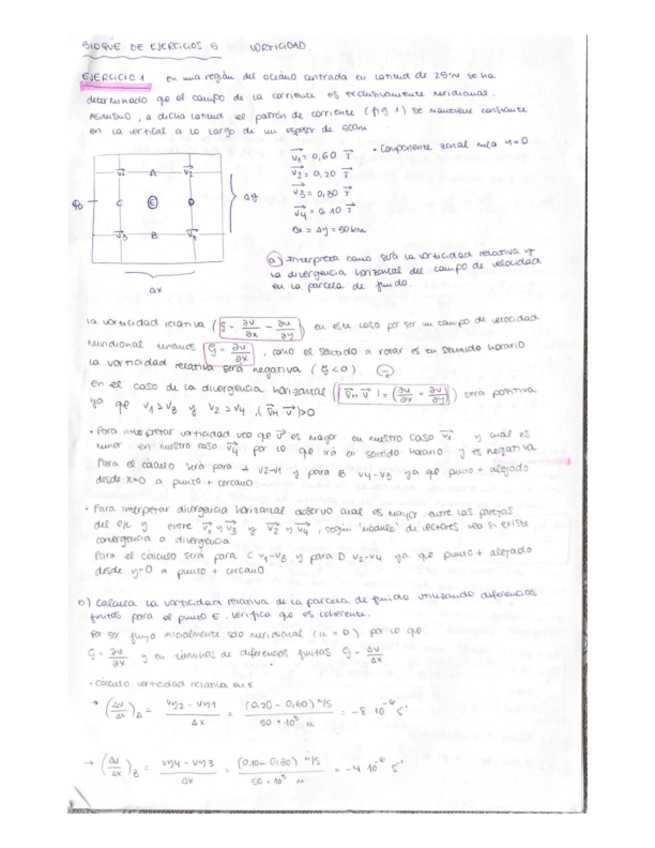 BLOQUE DE EJERCICIOS 5 VORTICIDAD.
EJERCICIO 1 en una región del océano centrada en latitud de 25ºN se ha
determinado que el campo de la corriente es exclusivamente meridional.
Asimismo, a dicha latitud el patrón de corriente (fig 1) se mantiene constante
en la vertical a lo largo de un espesor de 500m
v1 A v2
φ0 C E D Δy
v3 B v4
Δx
v1 = 0,60 j
v2 = 0,20 j
v3 = 0,30 j
v4 = 0,10 j
Δx = Δy = 50km
• Componente zonal nula u=0
a) Interpreta como será la vorticidad relativa y
la divergencia horizontal del campo de velocidad
en la parcela de fluido.
La vorticidad relativa (ζ = ∂v/∂x - ∂u/∂y) en este caso por ser un campo de velocidad
meridional tenemos ζ = ∂v/∂x, como el sentido a rotar es en sentido horario
la vorticidad relativa será negativa (ζ<0). (-)
en el caso de la divergencia horizontal (∇H·V) = (∂u/∂x + ∂v/∂y) será positiva
ya que v1>v3 y v2>v4, (∇H·V)>0
• Para interpretar vorticidad veo que v es mayor en nuestro caso v1 y cuál es
menor en nuestro caso v4 por lo que irá en sentido horario y es negativa
Para el cálculo será para A v2-v1 y para B v4-v3 ya que punto + alejado
desde x=0 a punto + cercano
• Para interpretar divergencia horizontal observo cual es mayor entre las parejas
del eje y entre v1 y v3 y v2 y v4, según "módulo" de vectores veo si existe
convergencia o divergencia
Para el cálculo será para C v1-v3 y para D v2-v4 ya que punto + alejado
desde y=0 a punto + cercano
b) Calcula la vorticidad relativa de la parcela de fluido utilizando diferencias
finitas para el punto E. Verifica que es coherente.
Por ser flujo inicialmente solo meridional (u = 0) por lo que
ζ = ∂v/∂x y en términos de diferencias finitas ζ = Δv/Δx
• Cálculo vorticidad relativa en E
→ (Δv/Δx)A = vy2 - vy1 / Δx = (0,20 - 0,60) m/s / 50·10³ m = -8 10⁻⁶ s⁻¹
→ (Δv/Δx)B = vy4 - vy3 / Δx = (0,10 - 0,30) m/s / 50·10³ m = -4 10⁻⁶ s⁻¹